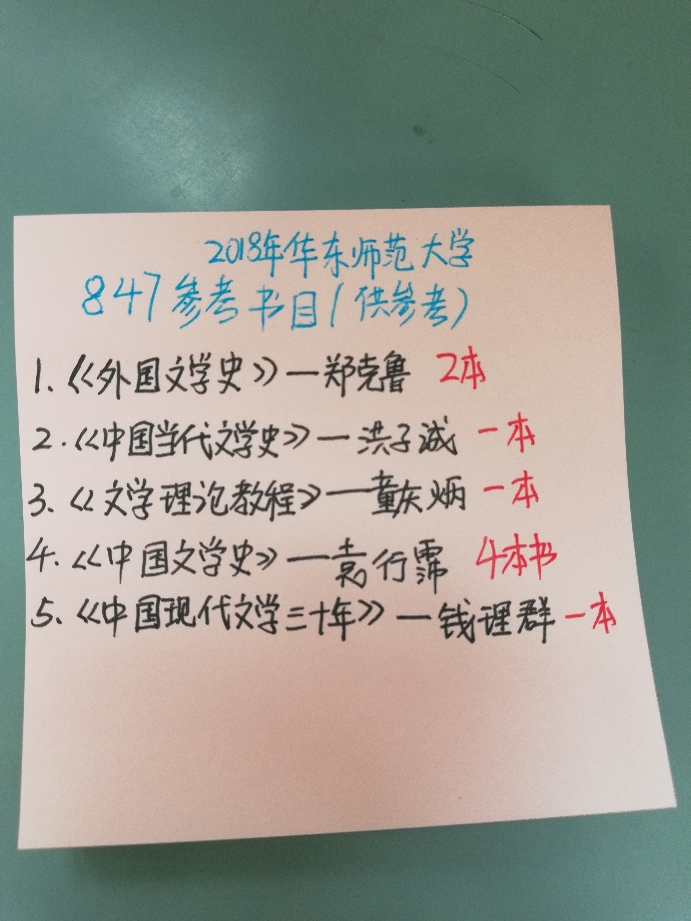 2018年华东师范大学
847参考书目(供参考)
1.《外国文学史》—郑克鲁 2本
2.《中国当代文学史》—洪子诚 一本
3.《文学理论教程》—童庆炳 一本
4.《中国文学史》—袁行霈 4本书
5.《中国现代文学三十年》—钱理群 一本